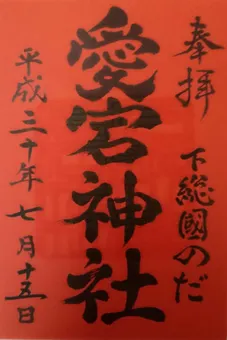 奉拝
下総國のだ
愛宕神社
平成三十年七月十五日